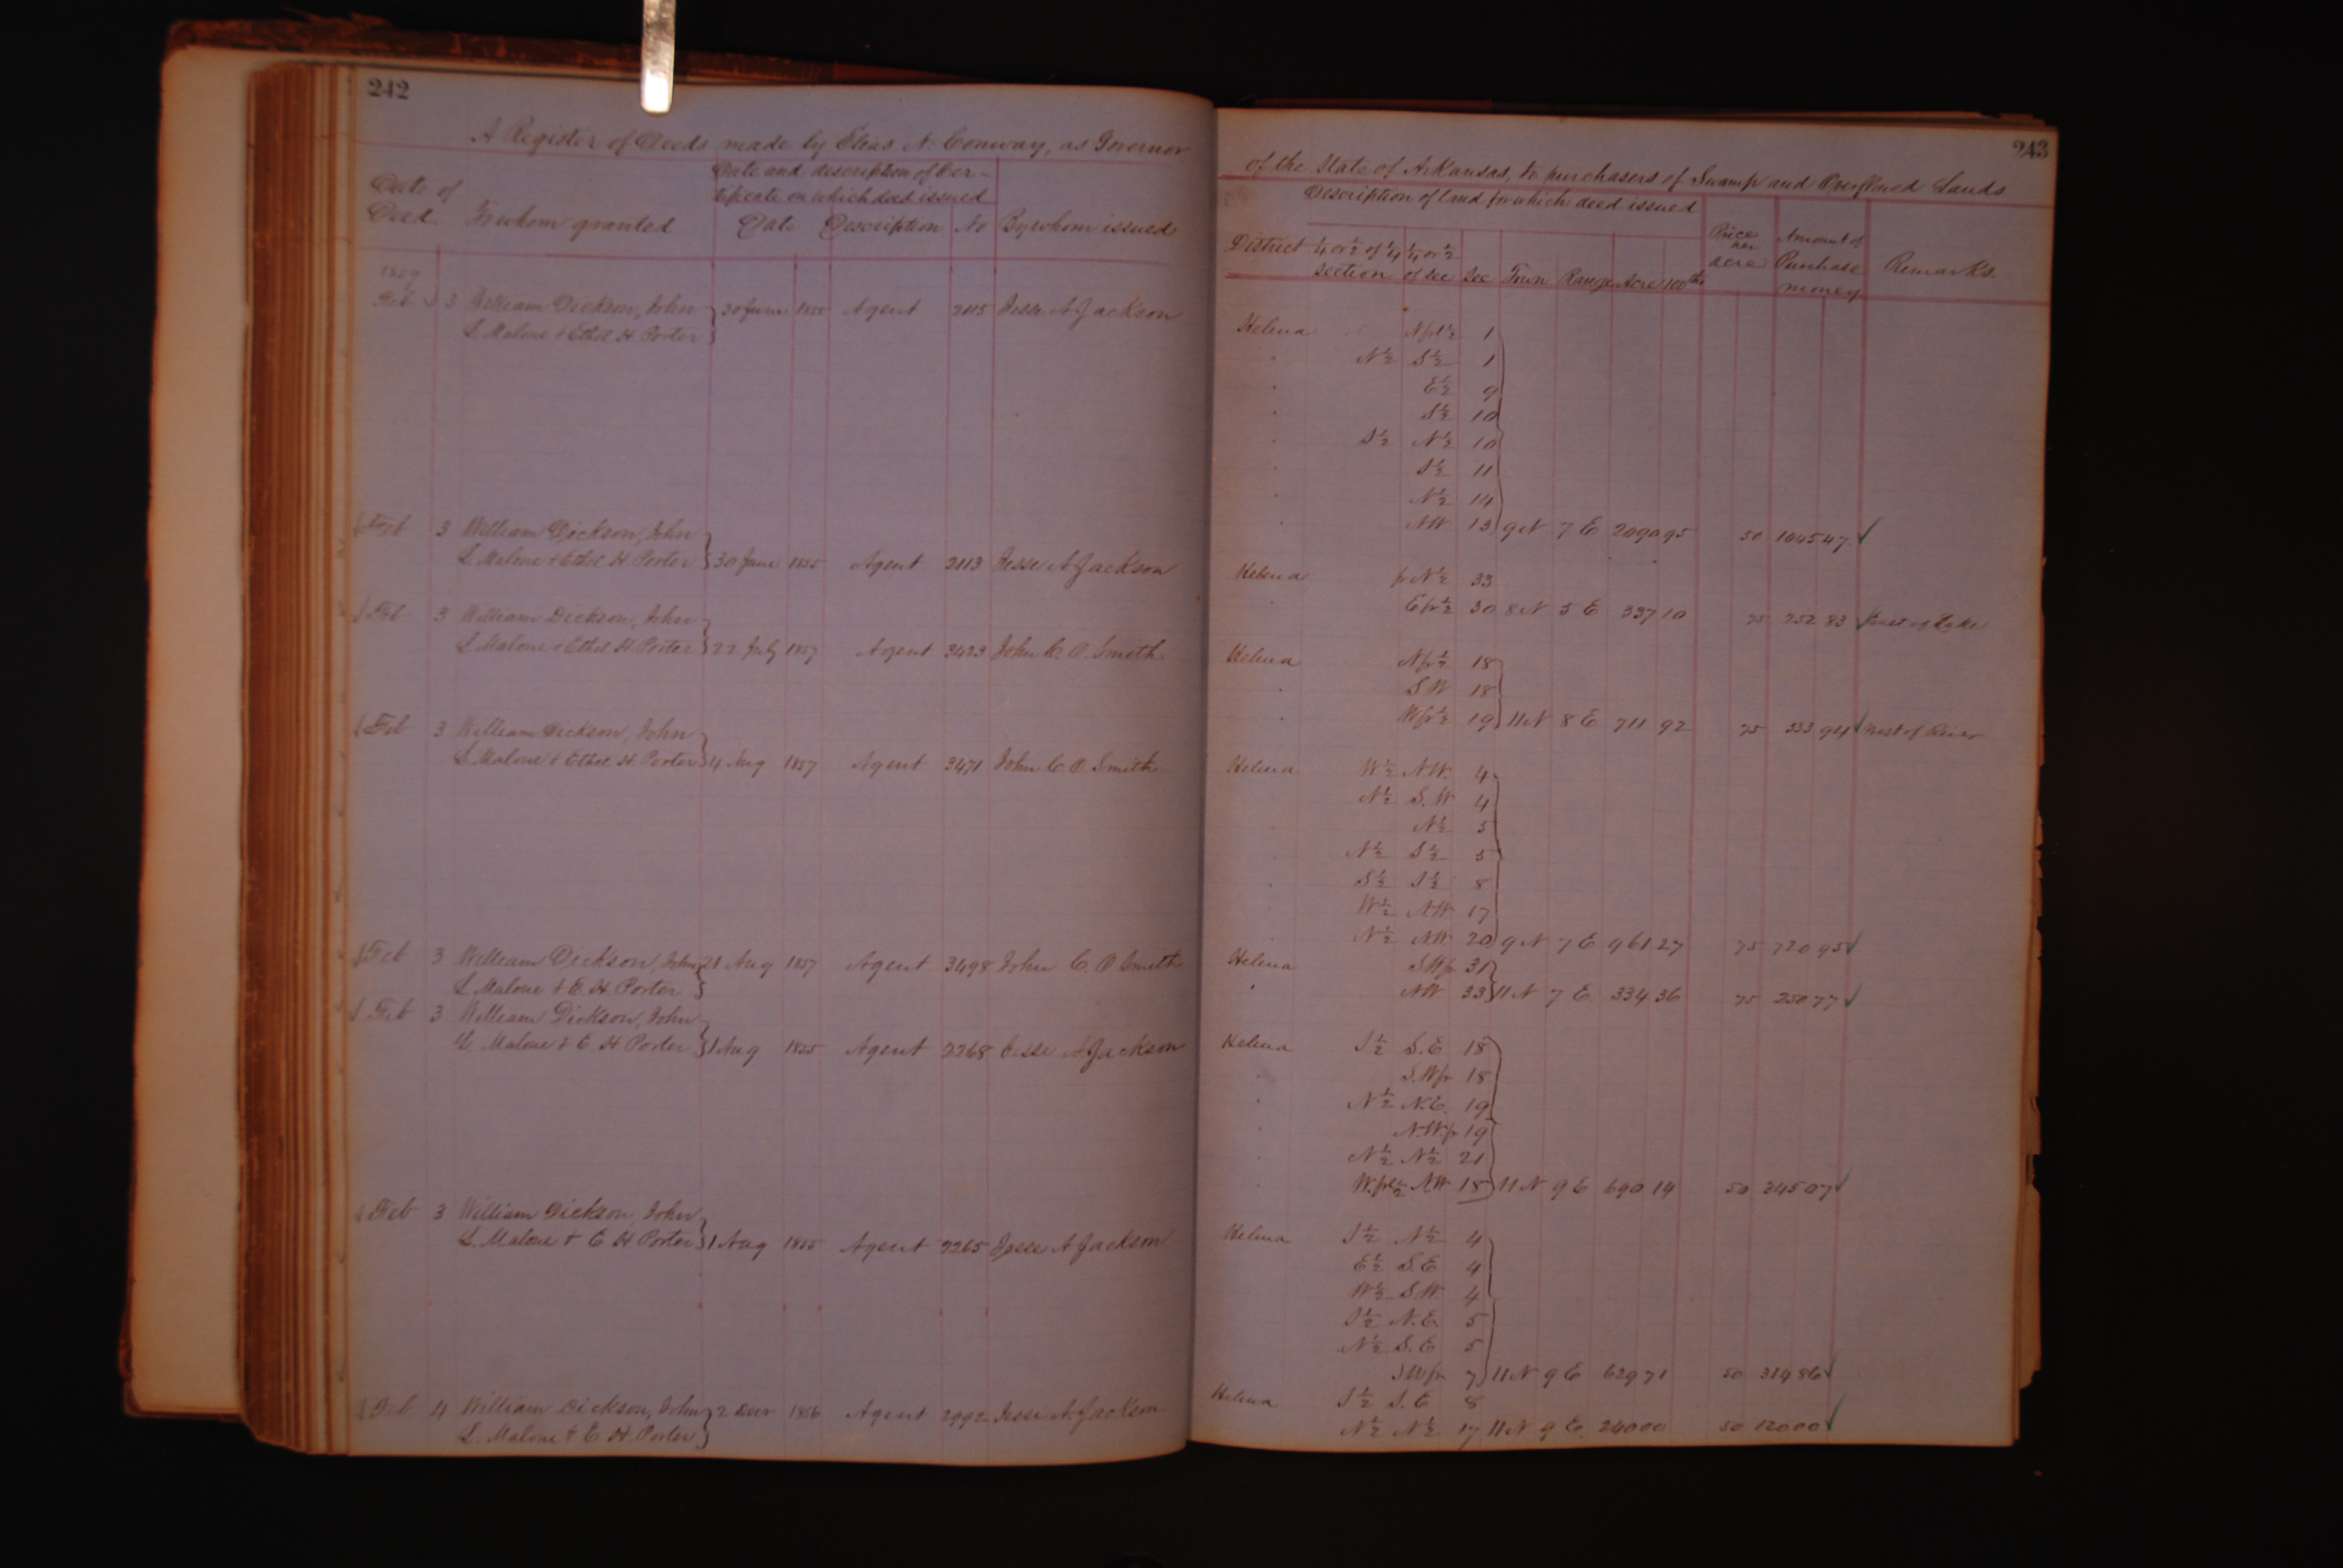 242
A Register of Deeds made by Elias N. Conway, as Governor
Date of Deed
To whom granted
Date and description of Cer-
tificate on which deed issued
Date Description No By whom issued
1859
Feb 3 William Dickson, John 30 June 1855 Agent 2115 Jesse A Jackson
L. Malone & Ethel H. Porter
Feb 3 William Dickson, John
L. Malone & Ethel H. Porter 30 June 1855 Agent 2113 Jesse A Jackson
Feb 3 William Dickson, John
L. Malone & Ethel H. Porter 22 July 1857 Agent 3423 John C. O. Smith
Feb 3 William Dickson, John
L. Malone & Ethel H. Porter 4 Aug 1857 Agent 3471 John C. O. Smith
Feb 3 William Dickson, John 21 Aug 1857 Agent 3498 John C. O Smith
L. Malone & E. H. Porter
Feb 3 William Dickson, John
L. Malone & E. H. Porter 1 Aug 1855 Agent 2268 Jesse A Jackson
Feb 3 William Dickson, John
L. Malone & E H Porter 1 Aug 1855 Agent 2265 Jesse A Jackson
Feb 4 William Dickson, John 2 Decr 1856 Agent 2992 Jesse A Jackson
L. Malone & E. H. Porter
243
of the State of Arkansas, to purchasers of Swamp and Overflowed Lands
Description of land for which deed issued
District 1/4 or 1/2 of 1/4 section 1/4 or 1/2 of sec Sec Town Range Acre 100ths
Price per acre
Amount of Purchase money
Remarks.
Helena N frl 1/2 1
" N 1/2 S 1/2 1
" E 1/2 9
" S 1/2 10
" S 1/2 N 1/2 10
" S 1/2 11
" N 1/2 14
" NW 13 9 N 7 E 2090 95 50 1045 47 ✓
Helena fr N 1/2 33
" E fr 1/2 30 8 N 5 E 337 10 75 252 83 ✓ East of Lake
Helena N fr 1/2 18
" S W 18
" W fr 1/2 19 11 N 8 E 711 92 75 533 94 ✓ West of River
Helena W 1/2 N.W. 4
N 1/2 S.W 4
N 1/2 5
N 1/2 S 1/2 5
S 1/2 S 1/2 8
W 1/2 N.W. 17
N 1/2 N.W. 20 9 N 7 E 961 27 75 720 95 ✓
Helena S.W fr 31
" N W 33 11 N 7 E. 334 36 75 250 77 ✓
Helena S 1/2 S.E 18
" S.W fr 18
" N 1/2 N.E. 19
N.W fr 19
" N 1/2 N 1/2 21
" W. frl 1/2 N W 18 11 N 9 E 690 14 50 345 07 ✓
Helena S 1/2 N 1/2 4
E 1/2 S.E 4
W 1/2 S.W. 4
S 1/2 N.E. 5
N 1/2 S.E 5
S W fr 7 11 N 9 E 629 71 50 314 86 ✓
Helena S 1/2 S. E 8
N 1/2 N 1/2 17 11 N 9 E. 240 00 50 120 00 ✓